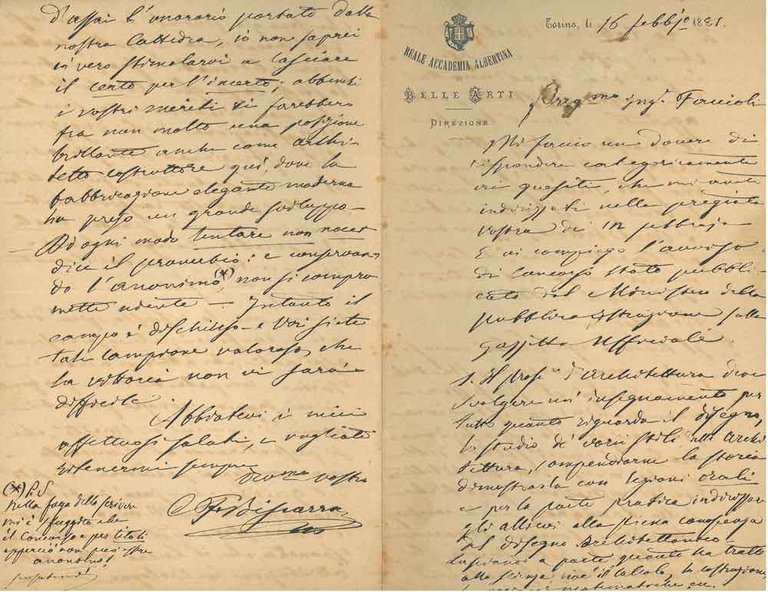 d'assai l'onorario portato dalla
nostra Cattedra, io non saprei
in vero stimolarvi a lasciare
il certo per l'incerto, abbenchè
i vostri meriti vi farebbero
fra non molto una posizione
brillante anche come archi-
tetto costruttore qui, dove la
fabbricazione elegante moderna
ha preso un grande sviluppo—
Ad ogni modo tentare non nuoce
dice il proverbio: e conservan
do l'anonimo (x) non si compro
mette niente — Intanto il
campo è dischiuso — e Voi siete
tale campione valoroso, che
la vittoria non vi sarà
difficile.
Abbiatevi i miei
affettuosi saluti, e vogliate
ritenermi sempre
Dev.mo vostro
F. Biscarra
(x) P.S.
Nella foga dello scrivere
mi è sfuggito che
il Concorso è per titoli
epperciò non può essere
anonimo!
Torino, li 16 febbjo 1881.
REALE ACCADEMIA ALBERTINA
DI
BELLE ARTI
DIREZIONE
Preg.mo Ing.e Faccioli
Mi faccio un dovere di
rispondere categoricamente
ai quesiti, che mi avete
indirizzati nella pregiata
vostra di 12 febbrajo
E vi compiego l'avviso
di concorso stato pubbli
cato dal Ministero della
pubblica istruzione sulla
Gazzetta Ufficiale.
1. Il profe d'Architettura deve
svolgere un' insegnamento per
tutto quanto riguarda il disegno,
lo studio de' varii stili nell' archi
tettura, compendiarne la storia
dimostrarla con lezioni orali
e per la parte pratica indirizzar
gli allievi alla piena conoscenza
del disegno architettonico
lasciando a parte quanto ha tratto
alla scienza, cioè il calcolo, la costruzione,
matematiche